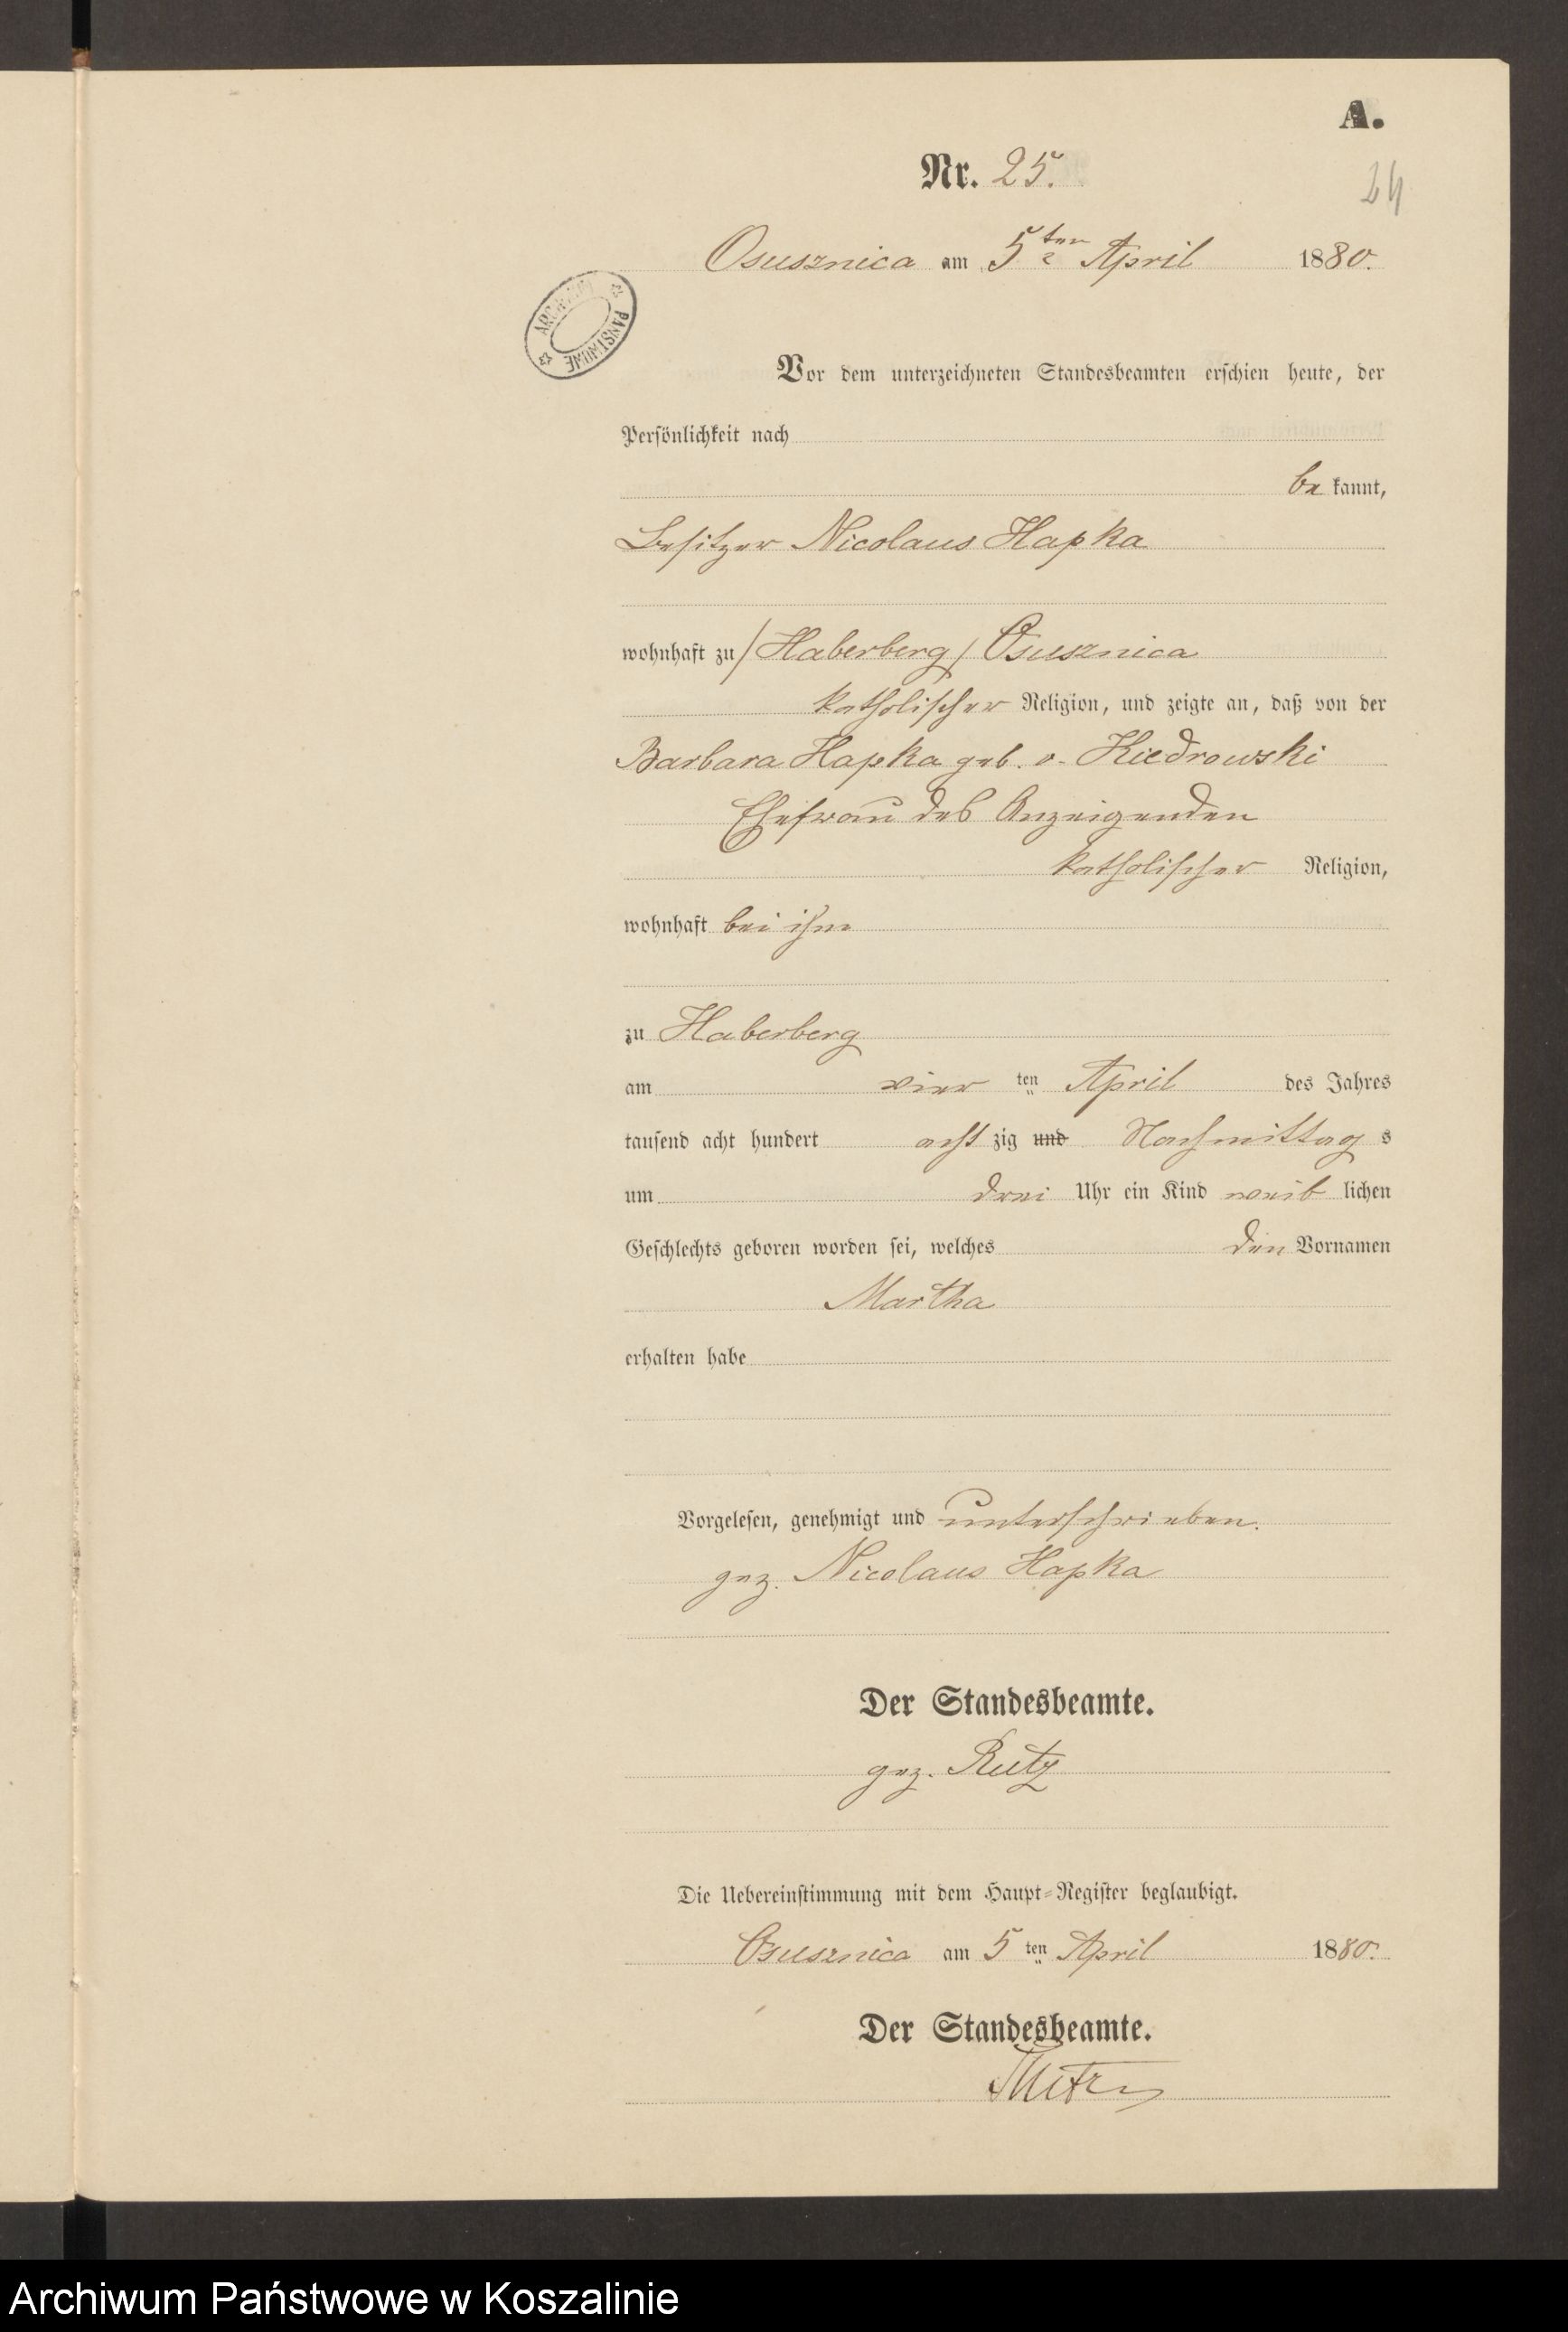 A.
Nr. 25.
24
Osusznica am 5ten April 1880.
ARCHIWUM PAŃSTWOWE
Vor dem unterzeichneten Standesbeamten erschien heute, der
Persönlichkeit nach
be kannt,
Besitzer Nicolaus Hapka
wohnhaft zu /Haberberg/ Osusznica
katholischer Religion, und zeigte an, daß von der
Barbara Hapka geb. v. Kiedrowski
Ehefrau des Anzeigenden
katholischer Religion,
wohnhaft bei ihm
zu Haberberg
am vier ten April des Jahres
tausend acht hundert acht zig und Nachmittag s
um drei Uhr ein Kind weib lichen
Geschlechts geboren worden sei, welches den Vornamen
Martha
erhalten habe
Vorgelesen, genehmigt und unterschrieben.
gez. Nicolaus Hapka
Der Standesbeamte.
gez. Rutz
Die Uebereinstimmung mit dem Haupt-Register beglaubigt.
Osusznica am 5 ten April 1880.
Der Standesbeamte.
Archiwum Państwowe w Koszalinie